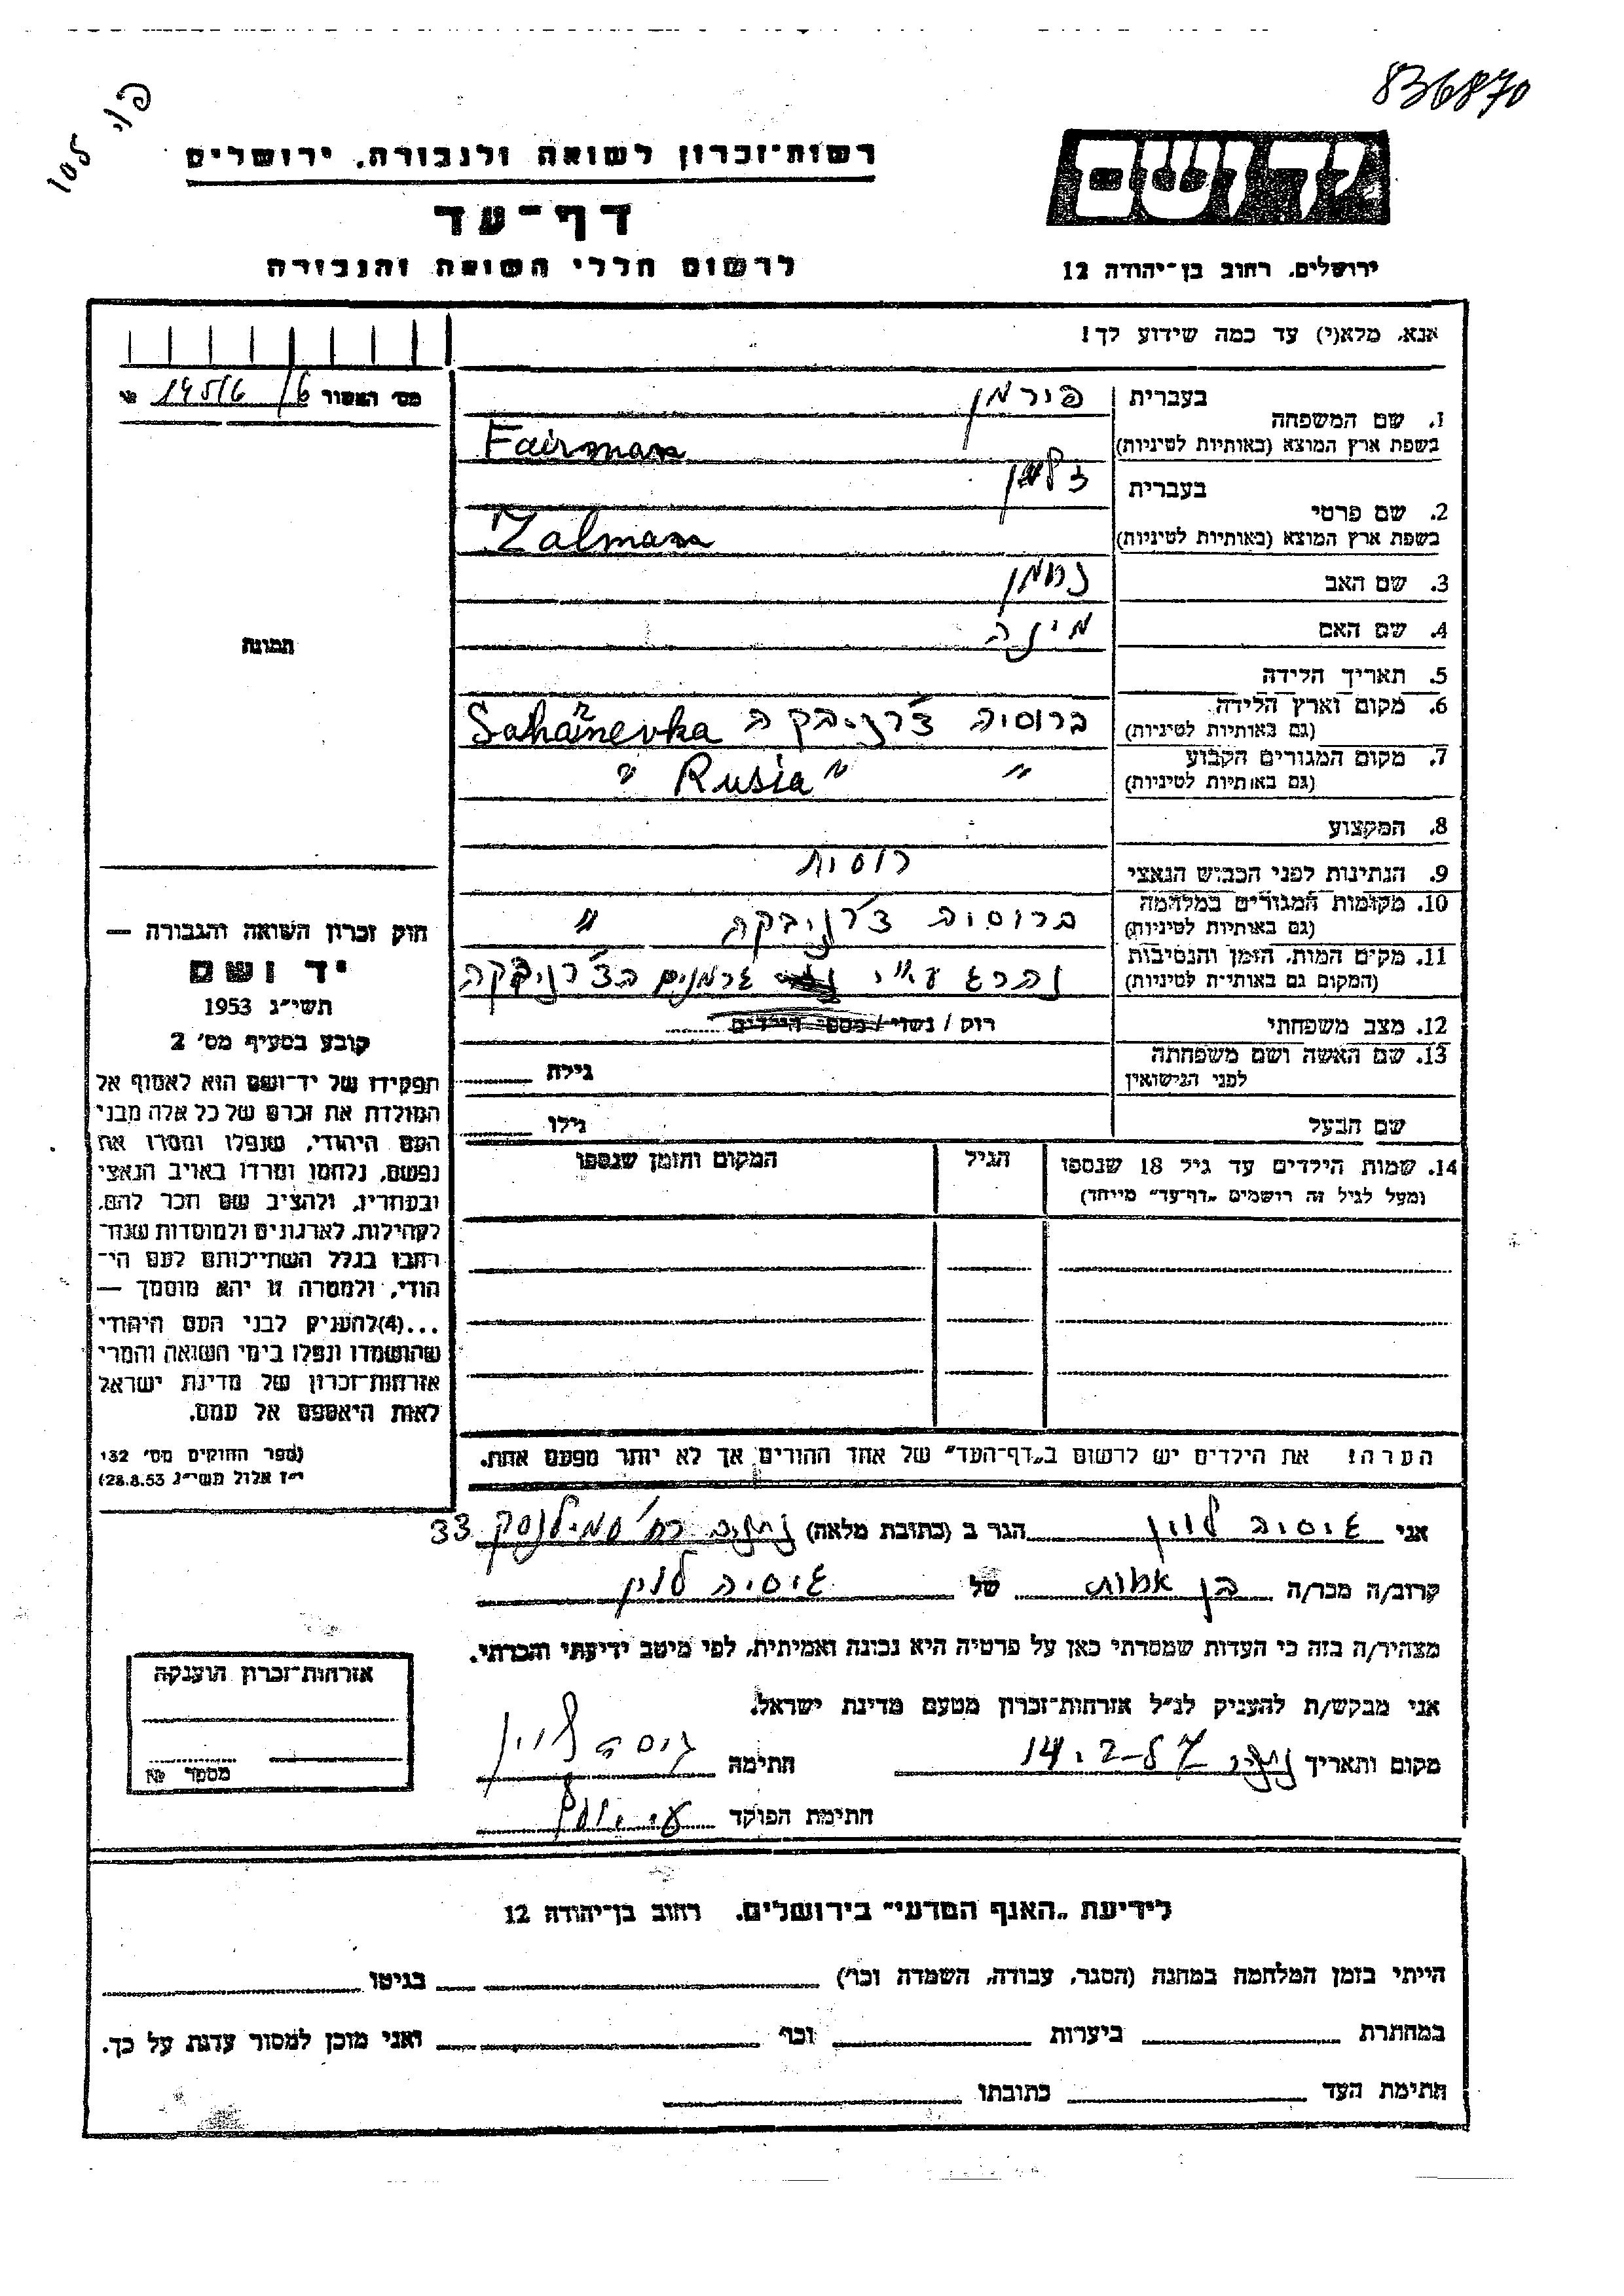 836870
105
רשות־זכרון לשואה ולגבורה, ירושלים
דף־עד
לרשום חללי השואה והגבורה
יד ושם
ירושלים, רחוב בן־יהודה 12
אנא, מלא(י) עד כמה שידוע לך!
מס׳ האשור 14516/6 №
1. שם המשפחה בעברית פירמן
בשפת ארץ המוצא (באותיות לטיניות) Fairman
2. שם פרטי בעברית זלמן
בשפת ארץ המוצא (באותיות לטיניות) Zalman
3. שם האב נחמן
4. שם האם מינה
5. תאריך הלידה
6. מקום וארץ הלידה (גם באותיות לטיניות) ברוסיה צ׳רניבקה
7. מקום המגורים הקבוע (גם באותיות לטיניות) " " Rusia "
8. המקצוע
9. הנתינות לפני הכבוש הנאצי רוסית
10. מקומות המגורים במלחמה (גם באותיות לטיניות) ברוסיה צ׳רניבקה "
11. מקום המות, הזמן והנסיבות (המקום גם באותיות לטיניות) נהרג ע״י גרמנים בצ׳רניבקה
12. מצב משפחתי רווק / נשוי / מספר הילדים
13. שם האשה ושם משפחתה לפני הנישואין גילה
שם הבעל גילו
14. שמות הילדים עד גיל 18 שנספו
(מעל לגיל זה רושמים „דף־עד״ מיוחד)
הגיל
המקום והזמן שנספו
הערה! את הילדים יש לרשום ב„דף־העד״ של אחד ההורים אך לא יותר מפעם אחת.
תמונה
חוק זכרון השואה והגבורה —
יד ושם
תשי״ג 1953
קובע בסעיף מס׳ 2
תפקידו של יד־ושם הוא לאסוף אל
המולדת את זכרם של כל אלה מבני
העם היהודי, שנפלו ומסרו את
נפשם, נלחמו ומרדו באויב הנאצי
ובעוזריו, ולהציב שם וזכר להם,
לקהילות, לארגונים ולמוסדות שנח־
רבו בגלל השתייכותם לעם הי־
הודי, ולמטרה זו יהא מוסמך —
...(4)להעניק לבני העם היהודי
שהושמדו ונפלו בימי השואה והמרי
אזרחות־זכרון של מדינת ישראל
לאות היאספם אל עמם.
(ספר החוקים מס׳ 132
י״ז אלול תשי״ג 28.8.53)
אני גיסיה לוין הגר ב (כתובת מלאה) נתניה רח׳ סמילנסק 33
קרוב/ה מכר/ה בן אחות של גיסיה לוין
מצהיר/ה בזה כי העדות שמסרתי כאן על פרטיה היא נכונה ואמיתית, לפי מיטב ידיעתי והכרתי.
אני מבקש/ת להעניק לנ״ל אזרחות־זכרון מטעם מדינת ישראל.
מקום ותאריך נתניה 14.2.57 חתימה גיסיה לוין
חתימת הפוקד
אזרחות־זכרון הוענקה
מספר №
לידיעת „האגף המדעי״ בירושלים, רחוב בן־יהודה 12
הייתי בזמן המלחמה במחנה (הסגר, עבודה, השמדה וכו׳) בגיטו
במחתרת ביערות וכו׳ ואני מוכן למסור עדות על כך.
חתימת העד כתובתו